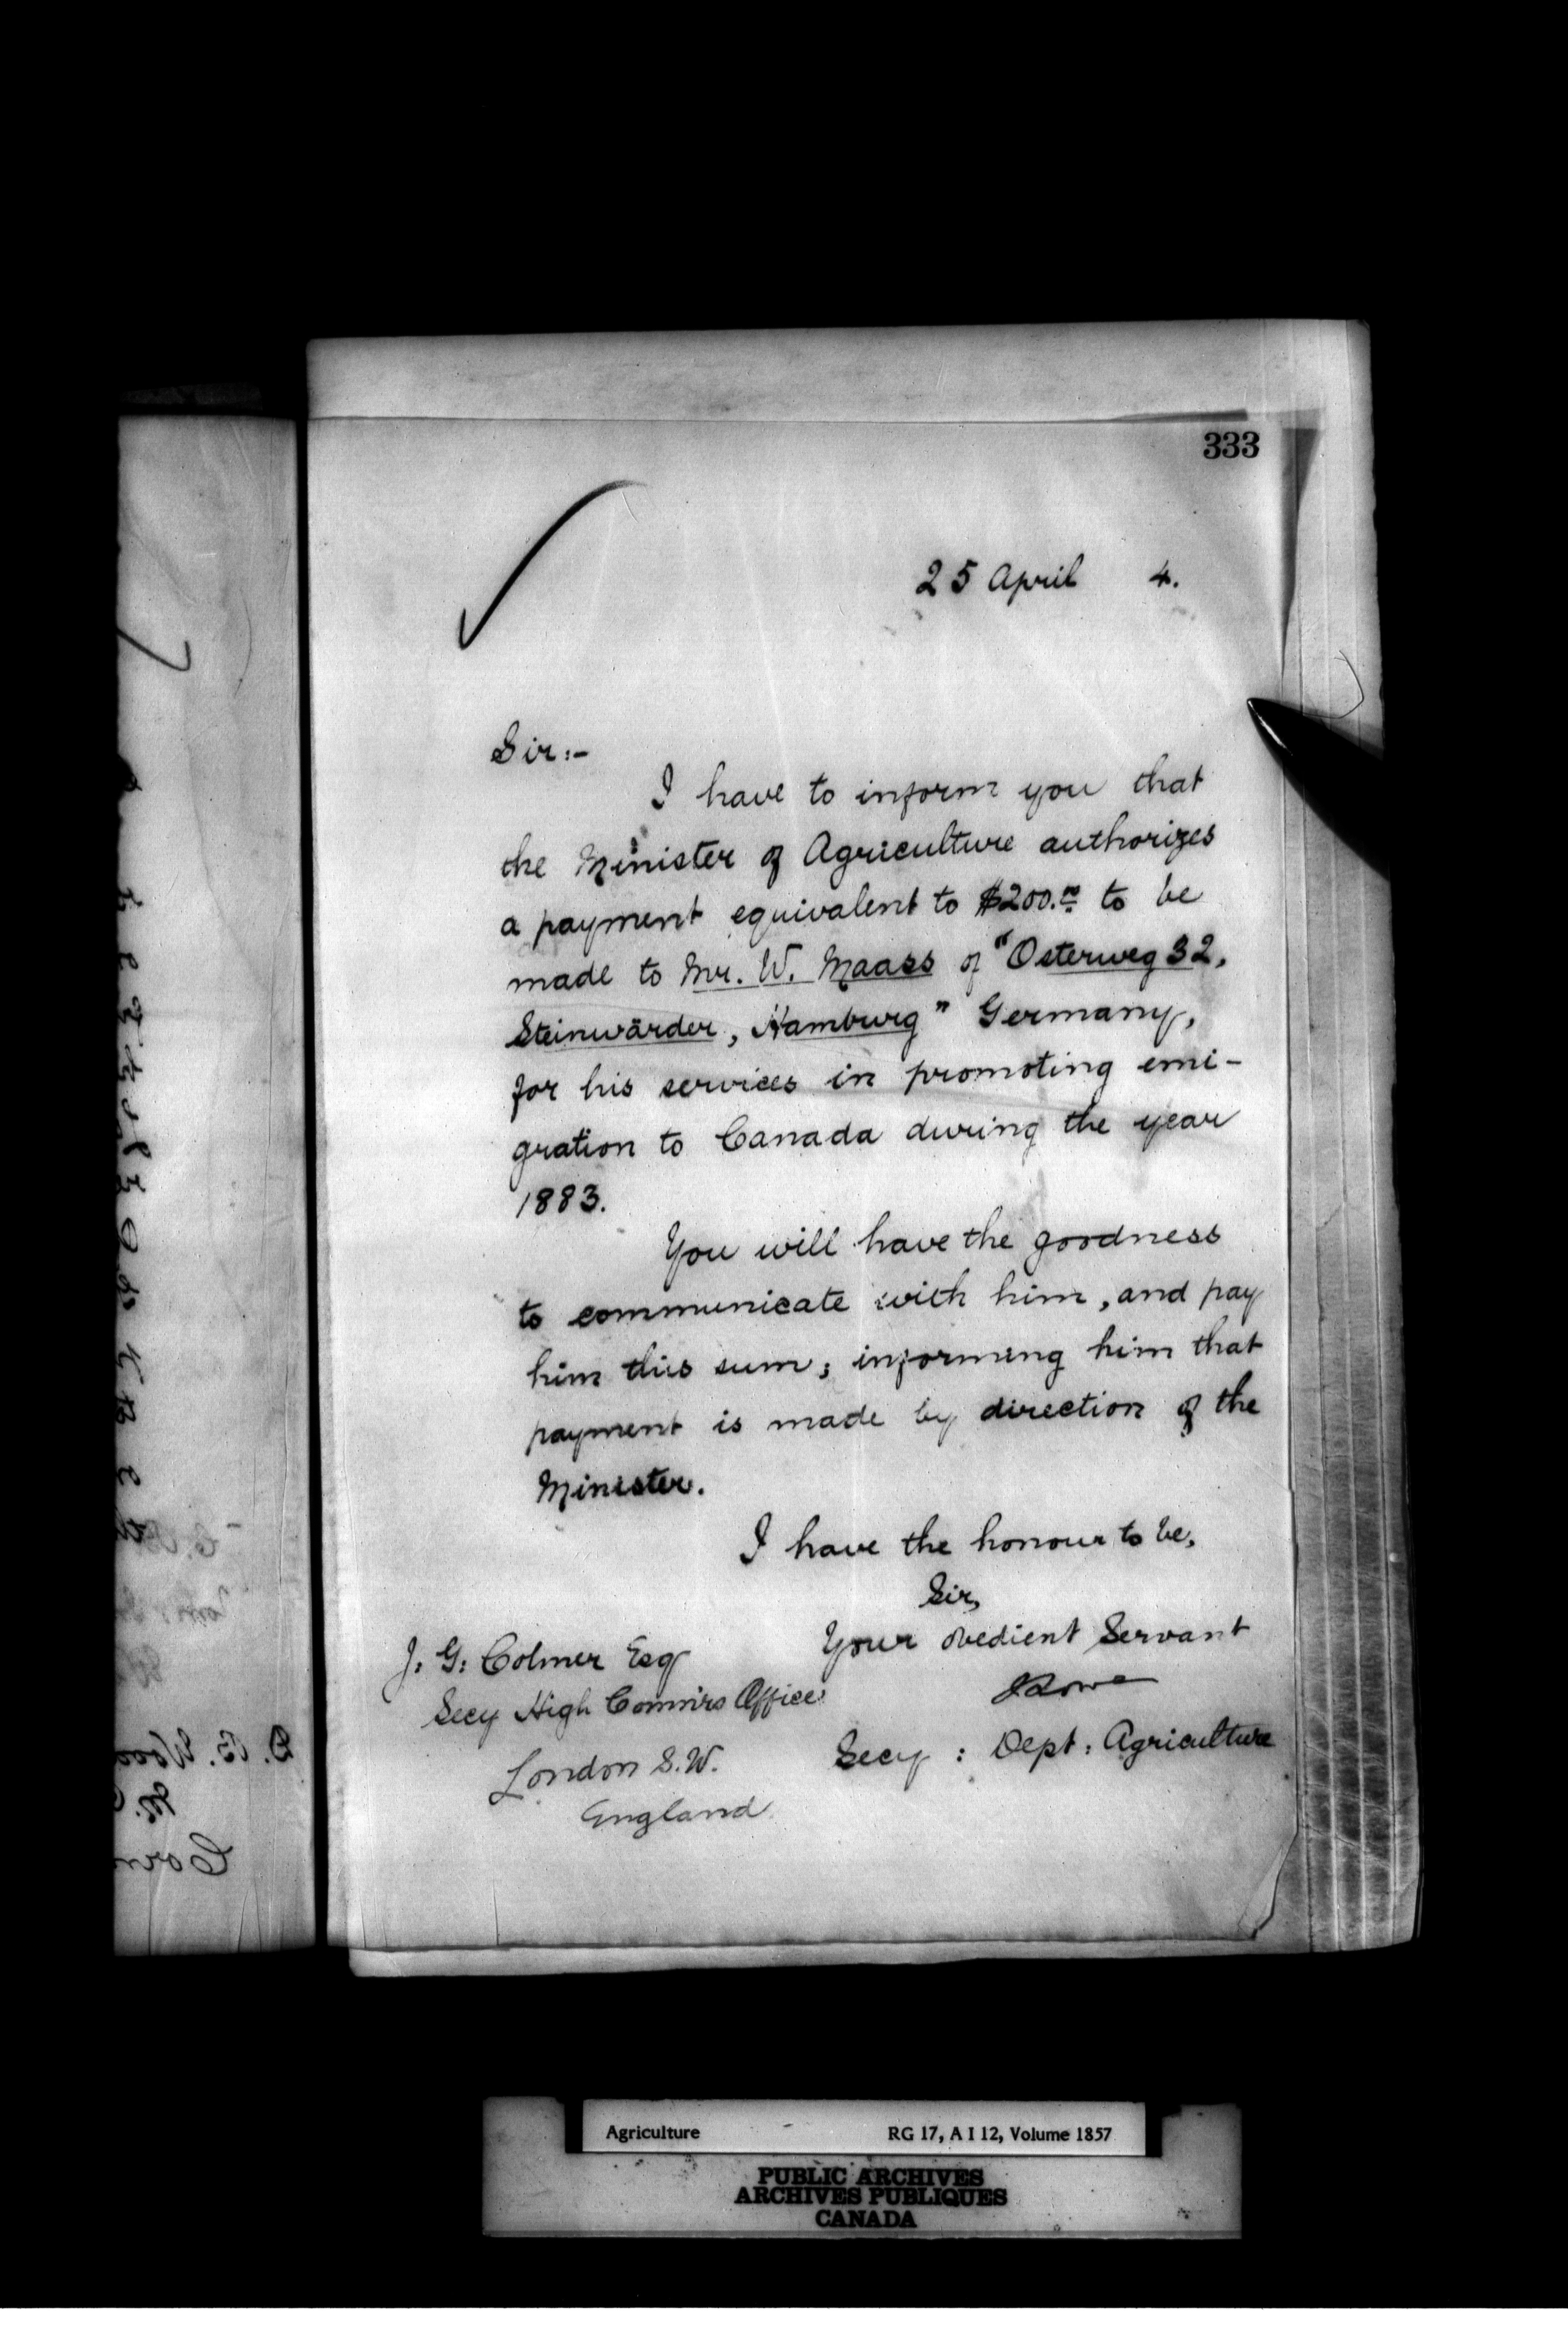 333
25 April 4.
Sir:-
I have to inform you that
the Minister of Agriculture authorizes
a payment equivalent to $200.00 to be
made to Mr. W. Maass of "Osterweg 32,
Steinwärder, Hamburg" Germany,
for his services in promoting emi-
gration to Canada during the year
1883.
You will have the goodness
to communicate with him, and pay
him this sum; informing him that
payment is made by direction of the
Minister.
I have the honour to be,
Sir,
Your obedient Servant
JLowe
Secy: Dept: Agriculture
J. G: Colmer Esq
Secy High Commrs Office
London S.W.
England
Agriculture RG 17, A I 12, Volume 1857
PUBLIC ARCHIVES
ARCHIVES PUBLIQUES
CANADA